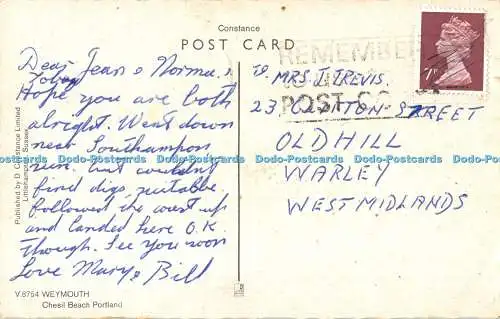 Constance
POST CARD
REMEMBER
TO USE
POST CO
7P
Dear Jean & Norma,
Hope you are both
alright. Went down
near Southampon
but couldnt
find digs suitable,
followed the coast up
and landed here O.K.
Though. See you soon
Love Mary & Bill
To MRS. J. TREVIS.
23, STREET
OLDHILL
WARLEY
WEST MIDLANDS
Published by D. Constance Limited
Littlehampton, Sussex
V.8754 WEYMOUTH
Chesil Beach Portland
Dodo-Postcards Dodo-Postcards Dodo-Postcards Dodo-Postcards Dodo-Postcards Dodo-Postcards